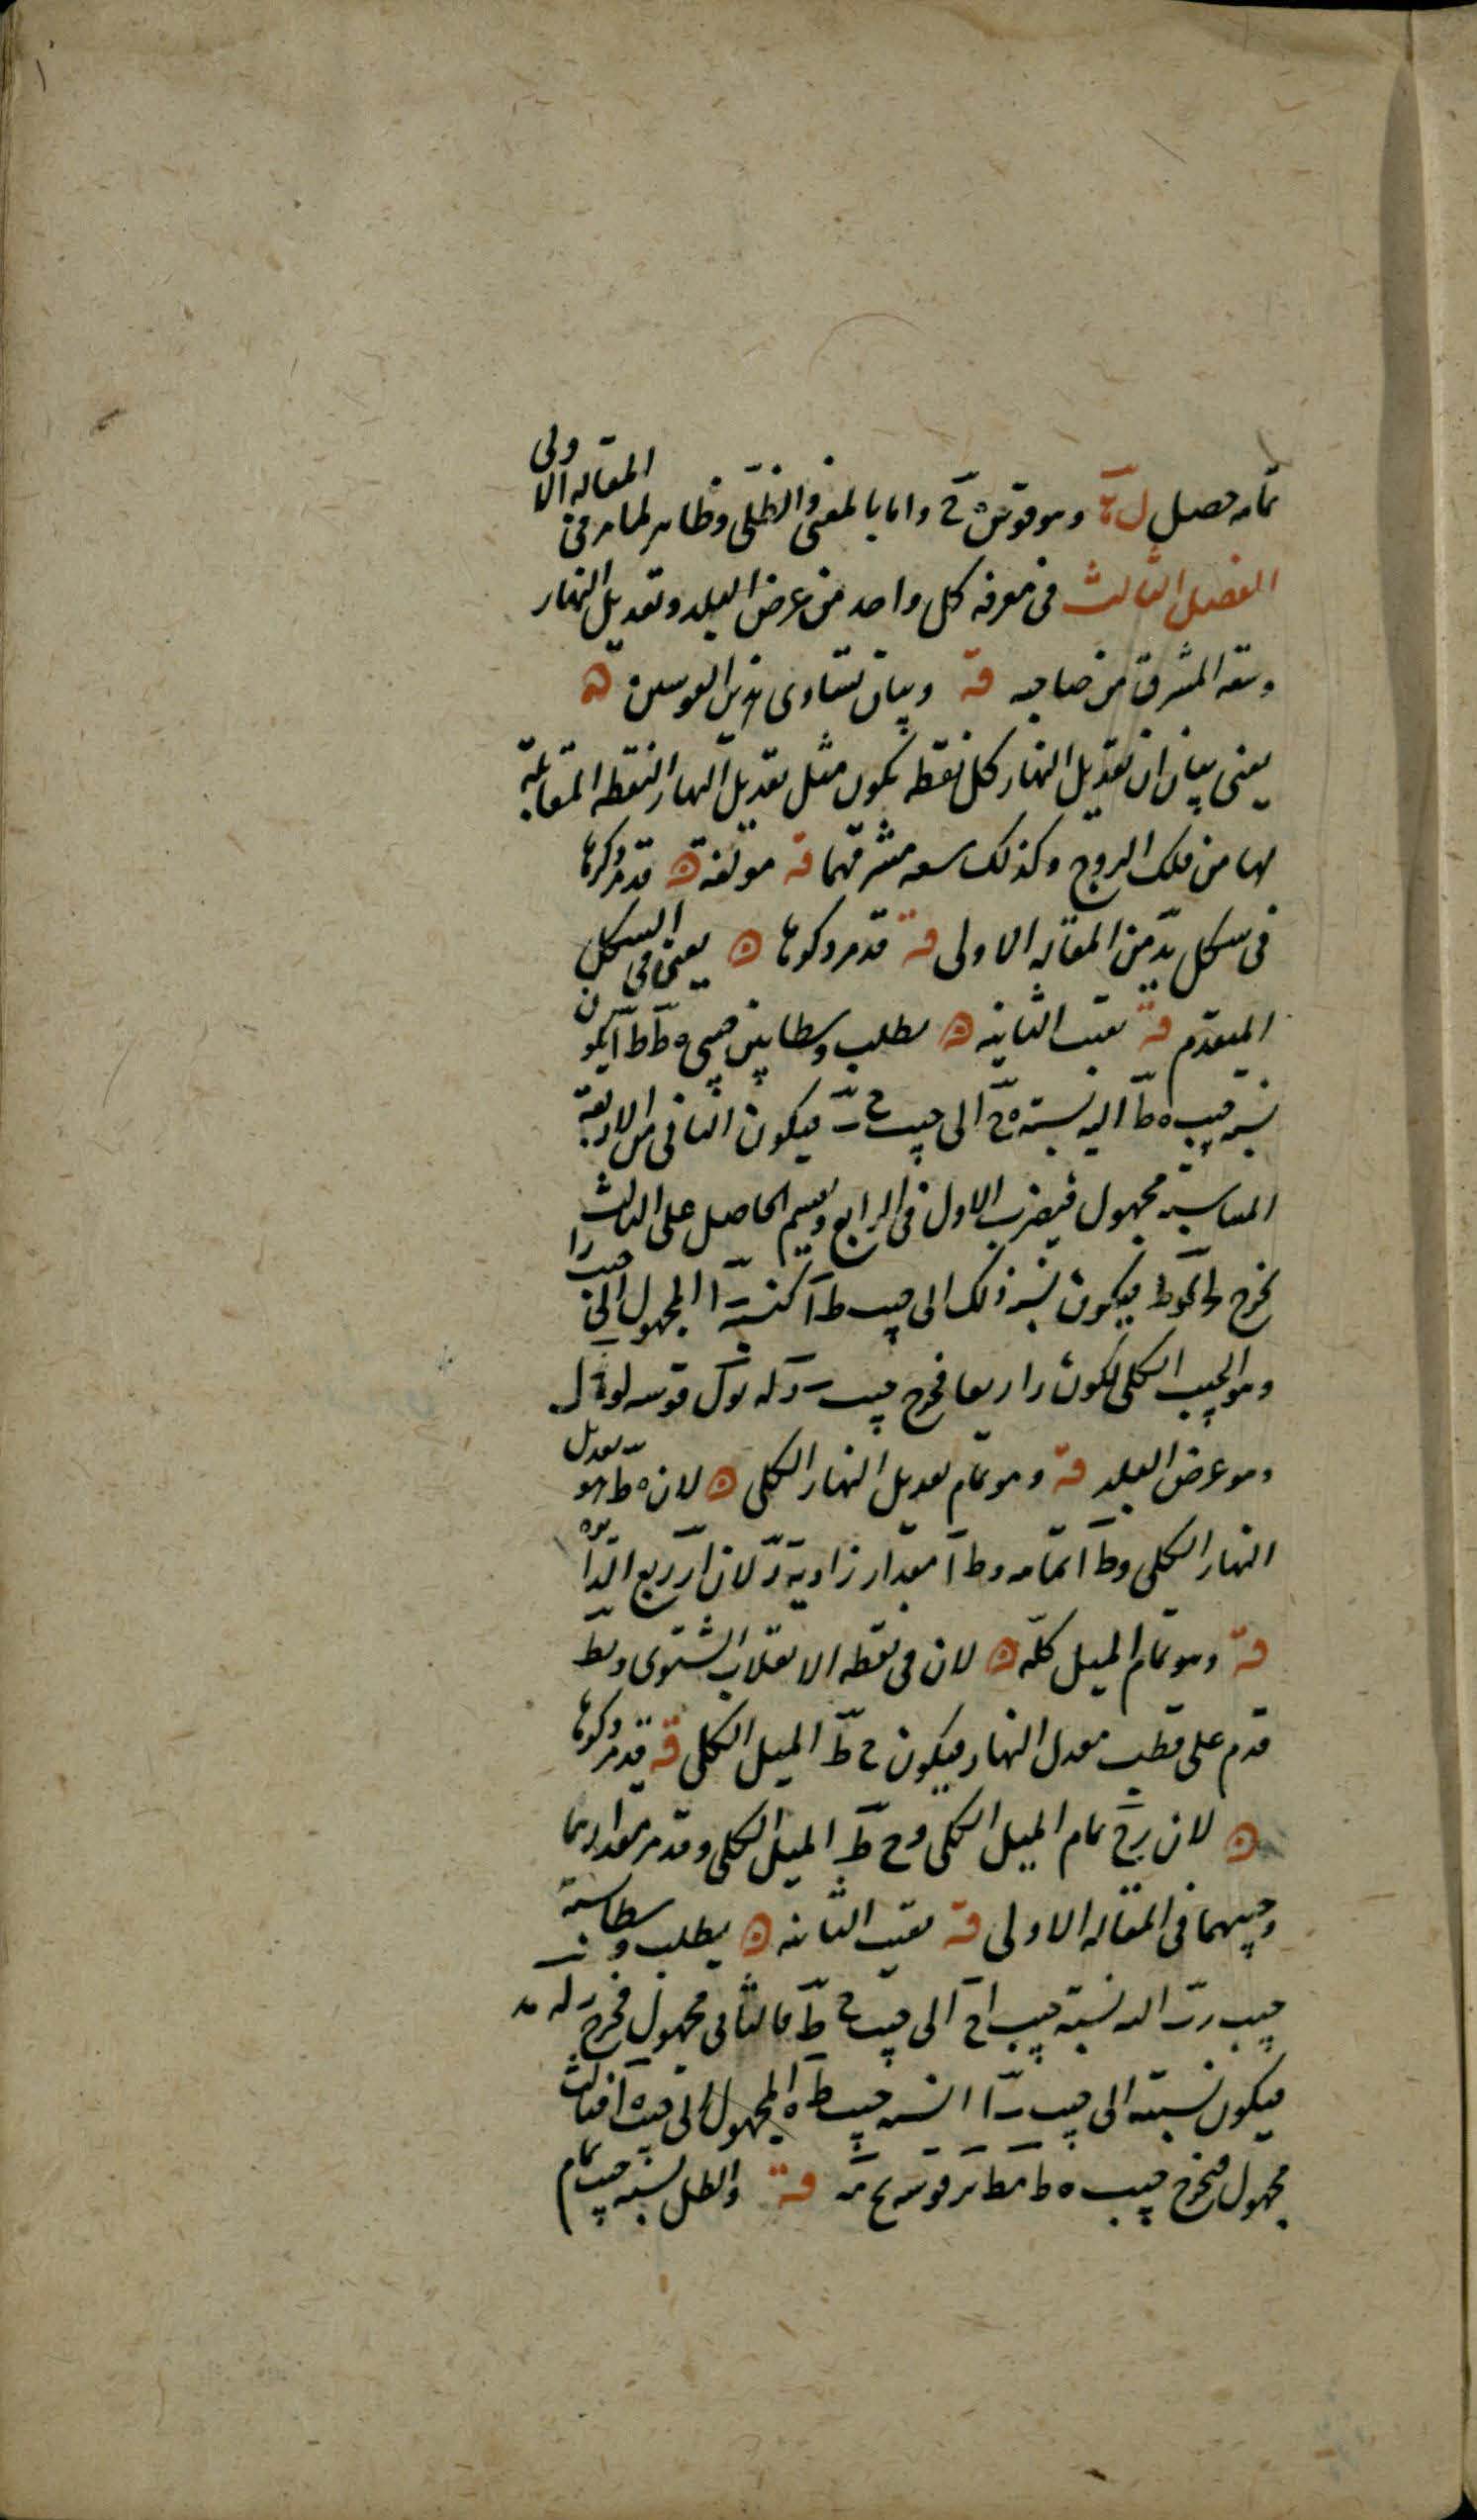 تمامه حصل ل وهو قوس ه ح واما بالمغنى والظلى فظاهر لما مر فى المقاله الاولى
الفصل الثالث فى معرفه كل واحد من عرض البلد وتعديل النهار
وسعه المشرق من صاحبه قه وبيان تساوى هذين القوسين ه
يعنى بيان ان تعديل النهار كل نقطه يكون مثل تعديل النهار النقطه المقابلة
لها من فلك البروج وكذلك سعه مشرقهما قه مؤلفة ه قد مر ذكرها
فى شكل يد من المقاله الاولى قه قد مر ذكرها ه يعنى فى الشكل
المتقدم قه بقيت الثانيه ه يطلب وسطا بين جيبى ه ط ط ا يكون
نسبه جيب ه ط اليه نسبة ه ح الى جيب ح ب فيكون الثانى من الاربعة
المتناسبة مجهول فيضرب الاول فى الرابع ويقسم الحاصل على الثالث
يخرج فيكون نسبه ذلك الى جيب ط ا كنسبة ا المجهول الى جيب را
وهو الجيب الكلى لكون را ربعا فخرج جيب قوسه
وهو عرض البلد قه وهو تمام تعديل النهار الكلى ه لان ه ط هو تعديل
النهار الكلى وط ا تمامه وط ا مقدار زاوية ر لان ا ر ربع الدائره
قه وهو تمام الميل كله ه لان فى نقطه الانقلاب الشتوى و ط
قد مر على قطب معدل النهار فيكون ح ط الميل الكلى قه قد مر ذكرها
ه لان رح تمام الميل الكلى وح ط الميل الكلى وقد مر مقدارهما
وجيبهما فى المقاله الاولى قه بقيت الثانيه ه يطلب وسطا نسبة
جيب ر ب اليه نسبة جيب ا ح الى جيب ح ط فالثانى مجهول فخرج
فيكون نسبته الى جيب ب ا نسبه جيب ط ه المجهول الى جيب ه ا فثالث
مجهول فخرج جيب ه ط قوسه قه والظل نسبه جيب تمام